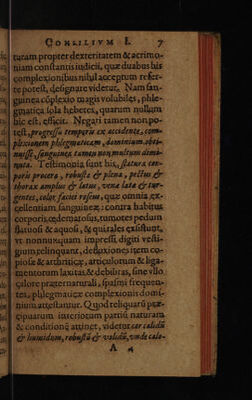 CONSILIVM I. 7
turam propter dexteritatem & acrimo-
niam constantis iudicii, quæ duabus his
complexionibus nihil acceptum refer-
re potest, designare videtur. Nam san-
guinea cõplexio magis volubiles, phle-
gmatica sola hebetes, quarum nullam
hic est, efficit. Negari tamen non po-
test, progressu temporis ex accidente, com-
plexionem phlegmaticam, dominium obti-
nuisse, sanguineâ tamen non multum dimi-
nuta. Testimonia sunt his, statura cor-
poris procera, robusta & plena, pectus &
thorax amplus & latus, venæ latæ & tur-
gentes, color faciei roseus, quæ omnia ex-
cellentiam sanguineæ: contra habitus
corporis œdematosus, tumores pedum
flatuosi & aquosi, & qui tales existunt,
vt nonnunquam impressi digiti vesti-
gium relinquant, defluxiones item co-
piosæ & arthriticæ, articulorum & liga-
mentorum laxitas & debilitas, sine vllo
calore præternaturali, spasmi frequen-
tes, phlegmaticæ complexionis domi-
nium attestantur. Quod reliquarũ præ-
cipuarum interiorum partiũ naturam
& conditionẽ attinet, videtur cor calidũ
& humidum, robustũ & validũ, vnde calo-
A 4